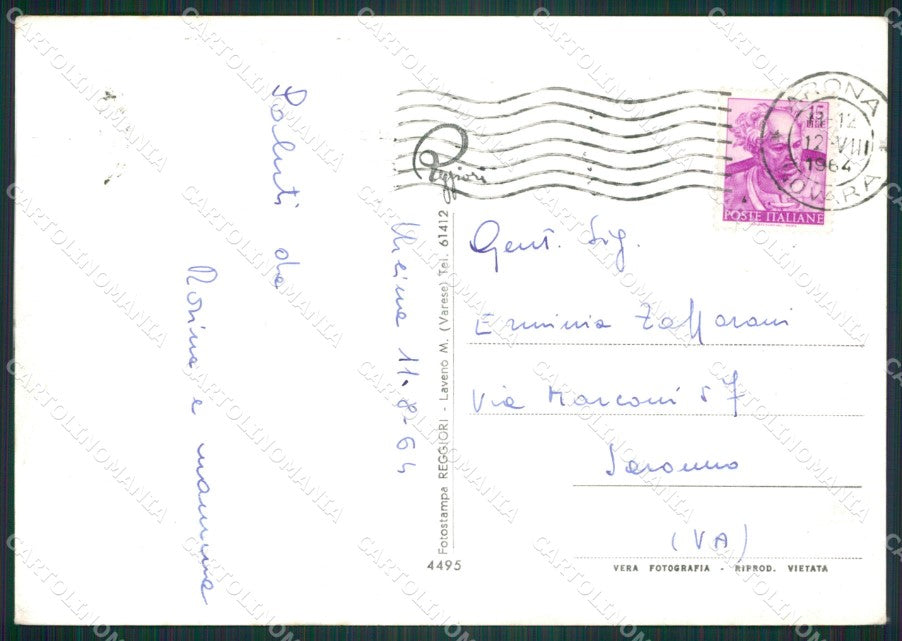 Saluti da
Rosina e mamma
Meina 11-8-64
Reggiori
Fotostampa REGGIORI - Laveno M. (Varese) Tel. 61412
4495
ARONA
NOVARA
12 VIII
1964
POSTE ITALIANE
Gent. Sig.
Erminia Zaffaroni
Via Marconi 57
Saronno
(VA)
VERA FOTOGRAFIA - RIPROD. VIETATA
CARTOLINOMANIA